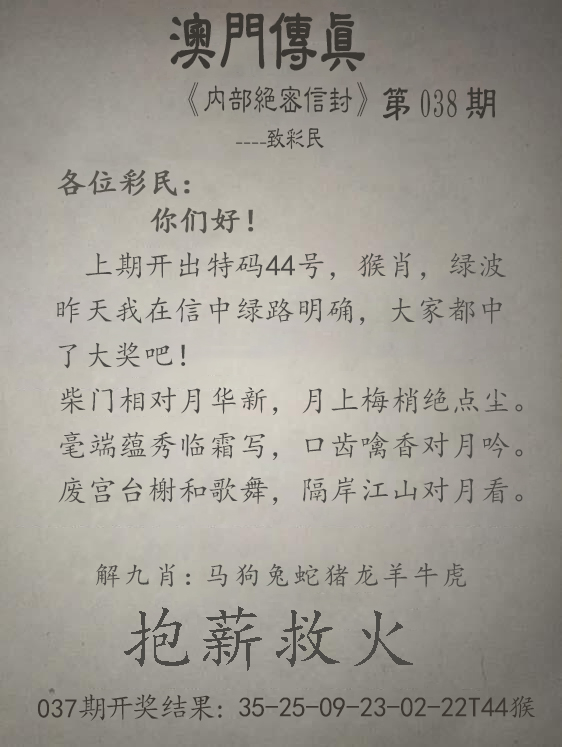 澳門傳眞
《内部絕密信封》第038期
----致彩民
各位彩民：
你们好！
上期开出特码44号，猴肖，绿波
昨天我在信中绿路明确，大家都中
了大奖吧！
柴门相对月华新，月上梅梢绝点尘。
毫端蕴秀临霜写，口齿噙香对月吟。
废宫台榭和歌舞，隔岸江山对月看。
解九肖：马狗兔蛇猪龙羊牛虎
抱薪救火
037期开奖结果：35-25-09-23-02-22T44猴